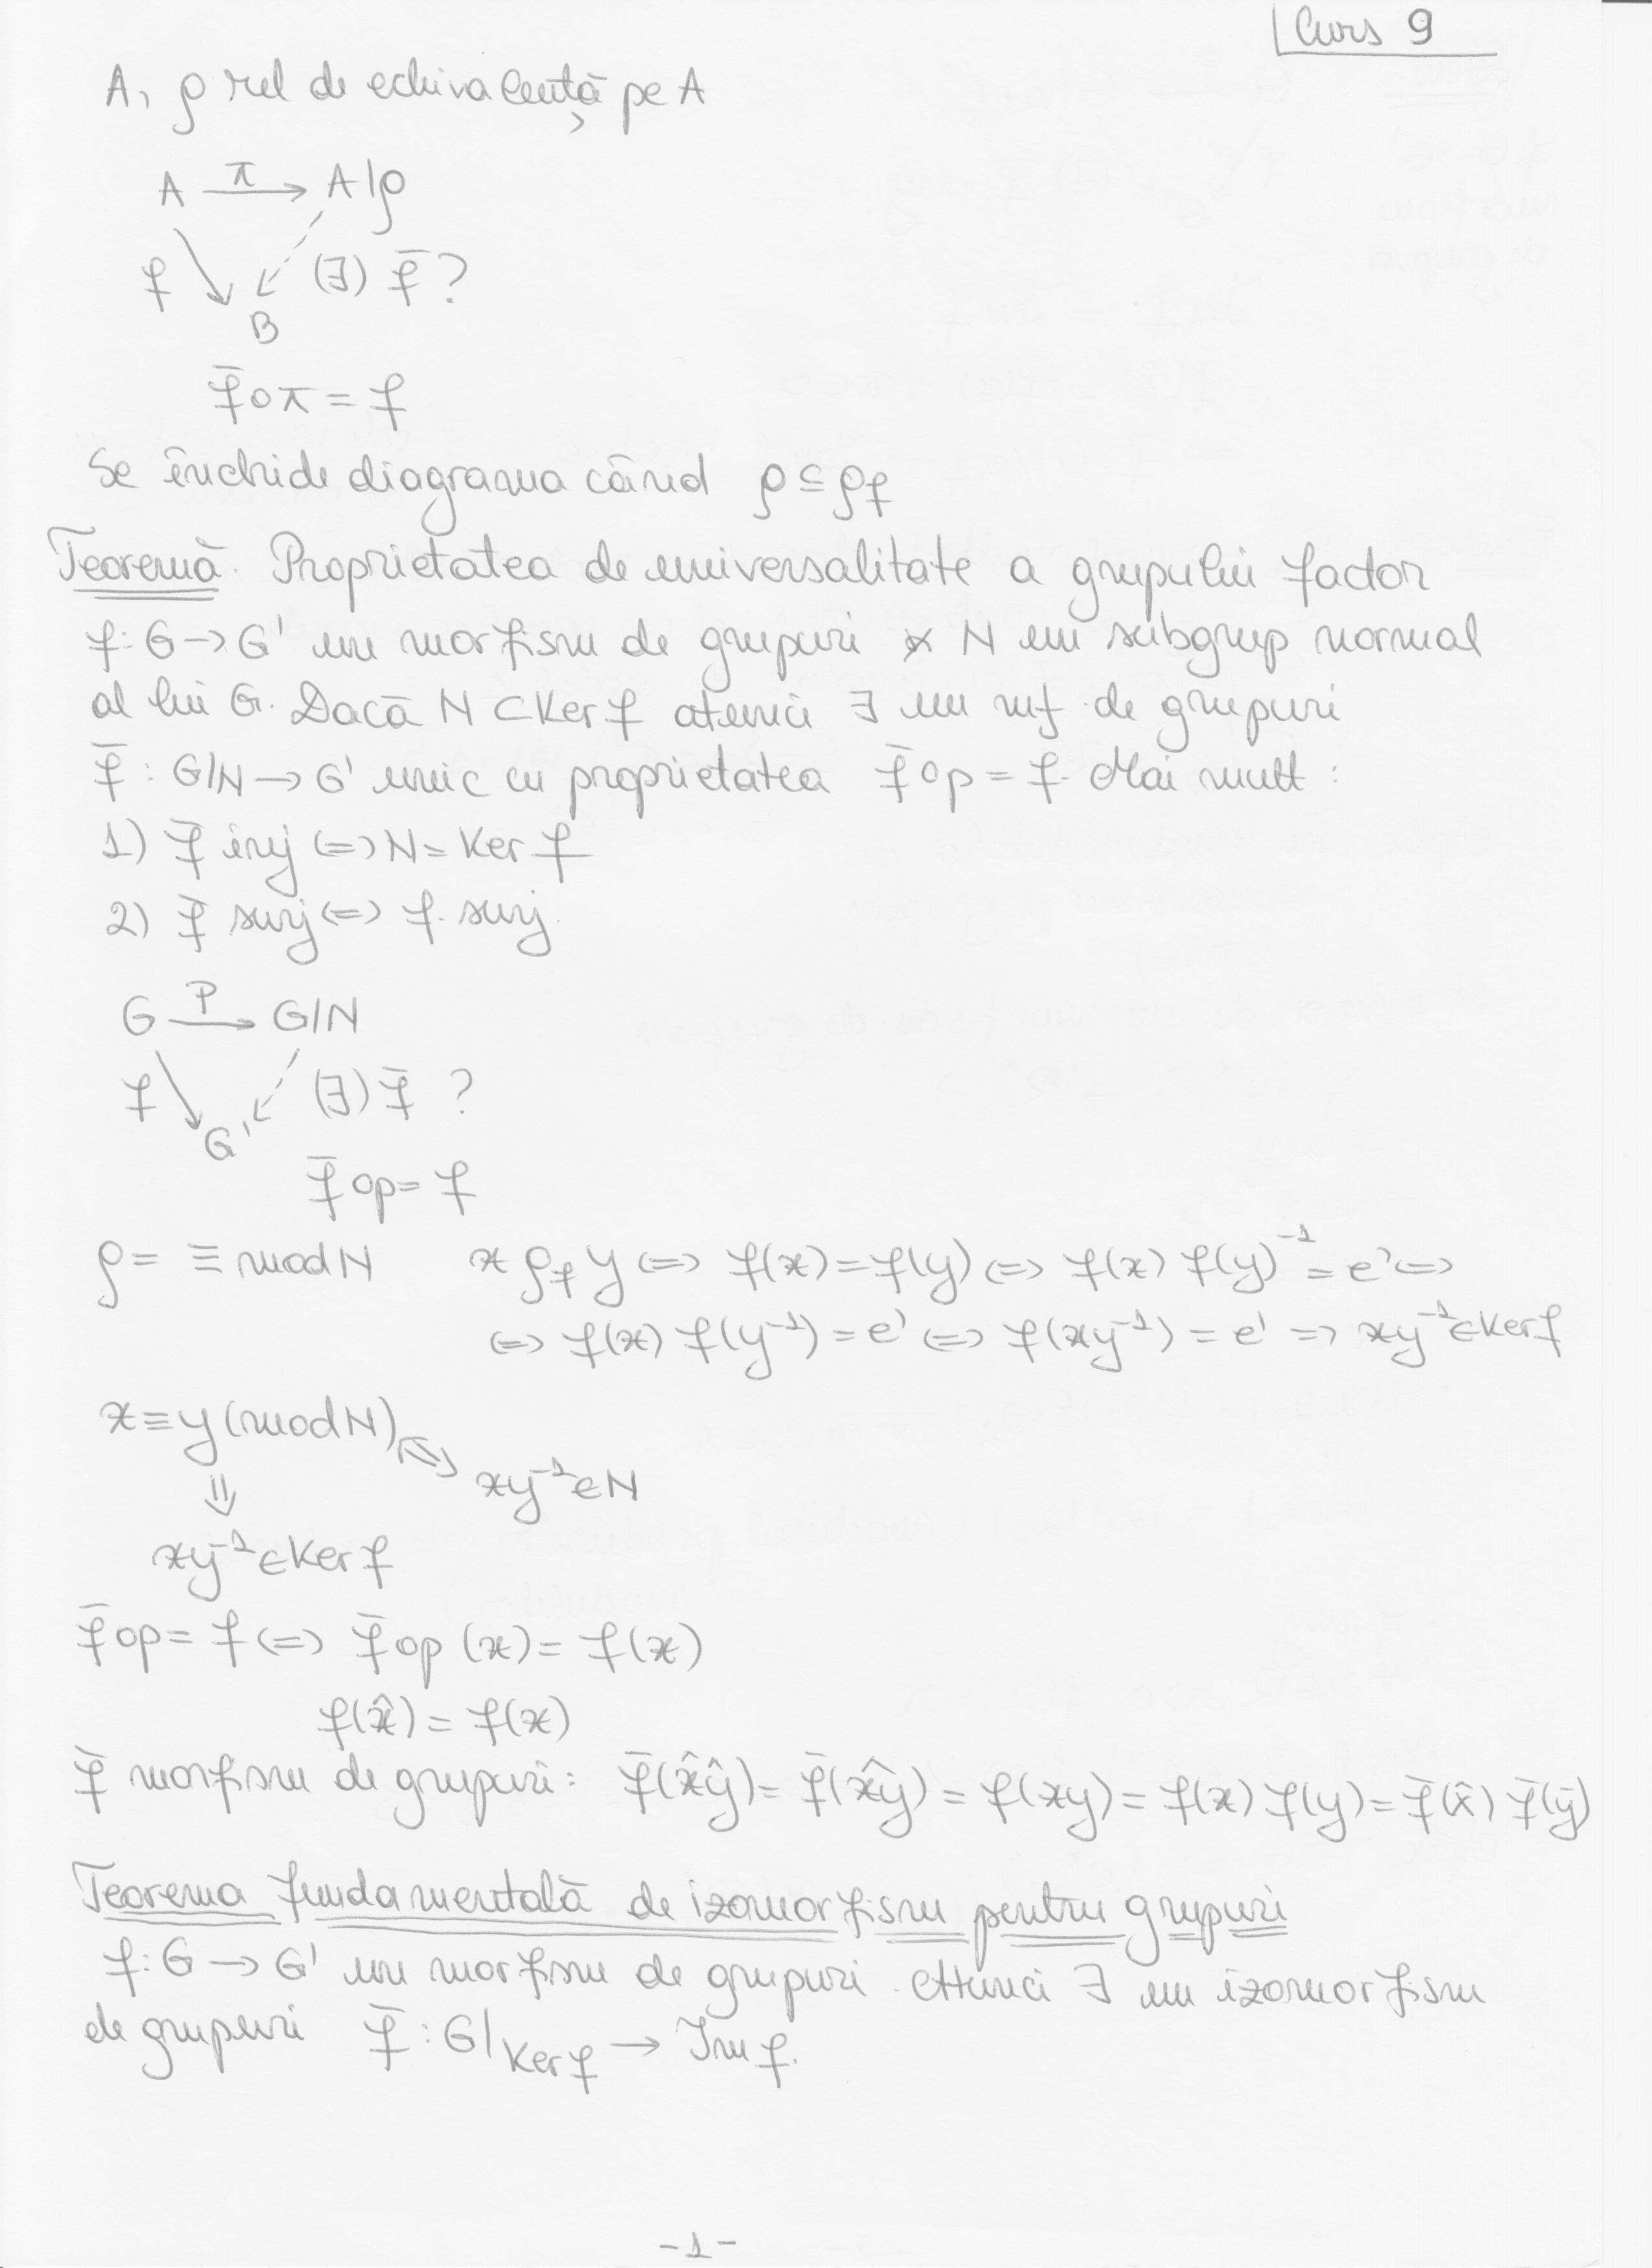 Curs 9
A, ρ rel de echivalență pe A
A π→ A|ρ
f (∃) f̄ ?
B
f̄ ∘ π = f
Se închide diagrama când ρ ⊆ ρ_f
Teoremă. Proprietatea de universalitate a grupului factor
f: G → G' un morfism de grupuri și N un subgrup normal
al lui G. Dacă N ⊂ Ker f atunci ∃ un mf. de grupuri
f̄ : G|N → G' unic cu proprietatea f̄ ∘ p = f. Mai mult :
1) f̄ inj (=) N = Ker f
2) f̄ surj (=) f. surj.
G p→ G|N
f (∃) f̄ ?
G'
f̄ ∘ p = f
ρ = ≡ mod N x ρ_f y (=) f(x) = f(y) (=) f(x) f(y)⁻¹ = e' (=)
(=) f(x) f(y⁻¹) = e' (=) f(xy⁻¹) = e' => xy⁻¹ ∈ Ker f
x ≡ y (mod N) (=)
xy⁻¹ ∈ N
⇓
xy⁻¹ ∈ Ker f
f̄ ∘ p = f (=) f̄ ∘ p (x) = f(x)
f(x̂) = f(x)
f̄ morfism de grupuri: f̄(x̂ŷ) = f̄(x͡y) = f(xy) = f(x) f(y) = f̄(x̂) f̄(ȳ)
Teorema fundamentală de izomorfism pentru grupuri
f: G → G' un morfism de grupuri. Atunci ∃ un izomorfism
de grupuri f̄ : G|Ker f → Im f.
-1-